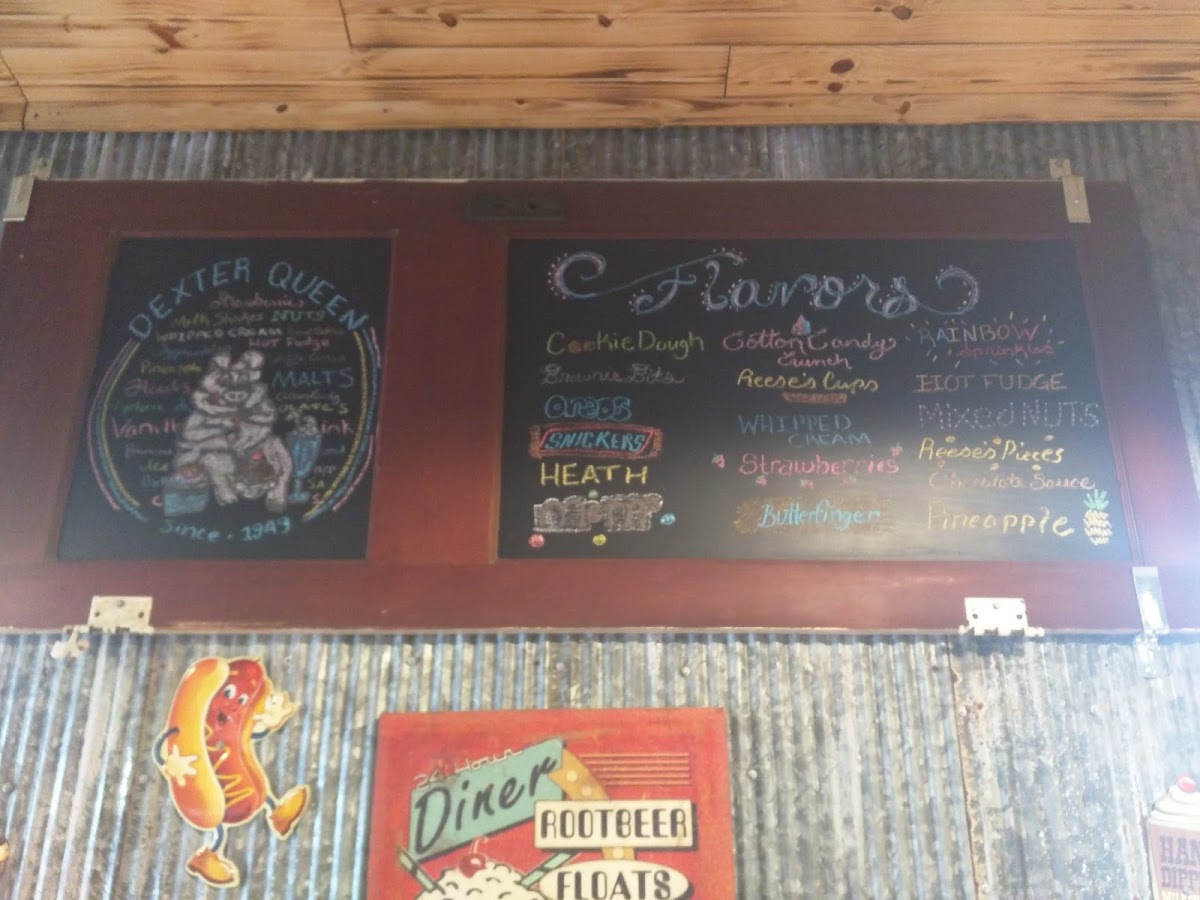 DEXTER QUEEN
Strawberries
Milk Shakes NUTS
WHIPPED CREAM
HOT Fudge
MALTS
Since - 1949
Flavors
Cookie Dough
Brownie Bits
OREOS
SNICKERS
HEATH
Cotton Candy
Crunch
Reese's Cups
WHIPPED
CREAM
Strawberries
Butterfinger
RAINBOW
Sprinkles
HOT FUDGE
Mixed NUTS
Reese's Pieces
Chocolate Sauce
Pineapple
24 Hour
Diner
ROOTBEER
FLOATS